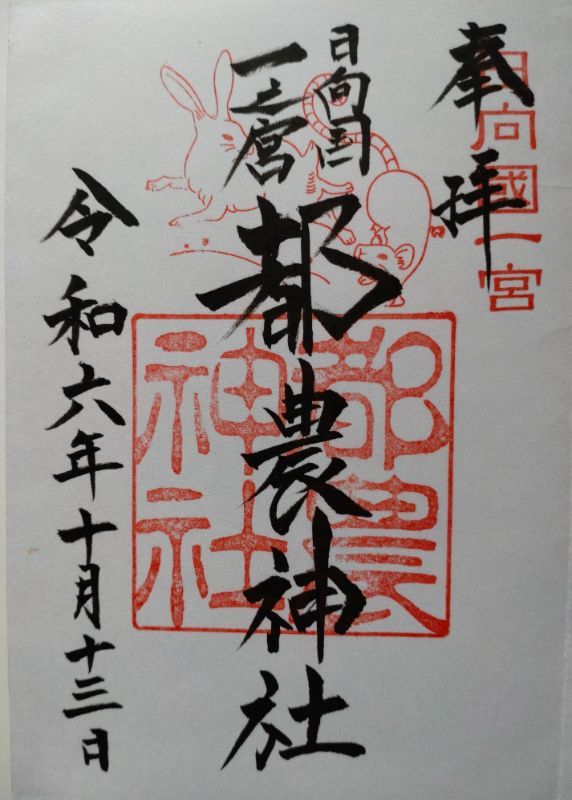 奉拝
日向國一宮
日向国
一之宮
都農神社
都農神社
令和六年十月十三日